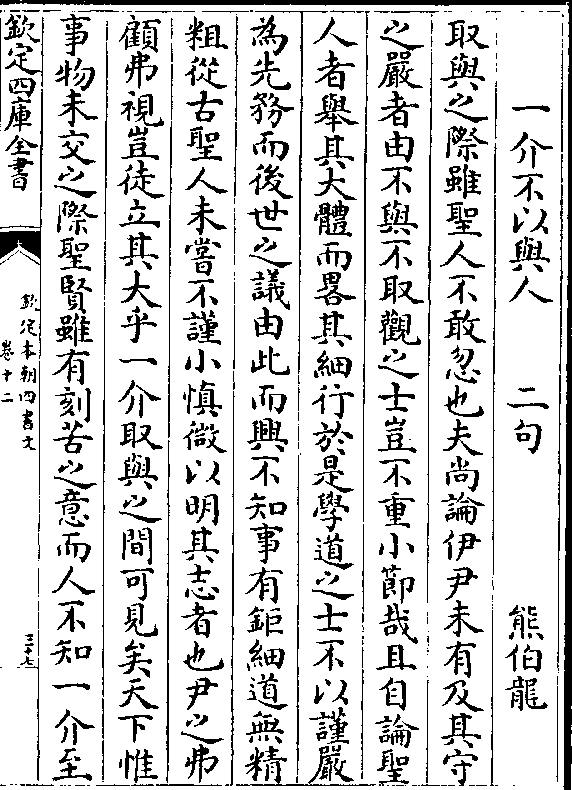 一介不以與人　二句　熊伯龍
取與之際雖聖人不敢忽也夫尚論伊尹未有及其守
之嚴者由不與不取觀之士豈不重小節哉且自論聖
人者舉其大體而畧其細行於是學道之士不以謹嚴
為先務而後世之議由此而興不知事有鉅細道無精
粗從古聖人未嘗不謹小慎微以明其志者也尹之弗
顧弗視豈徒立其大乎一介取與之間可見矣天下惟
事物未交之際聖賢雖有刻苦之意而人不知一介至
欽定四庫全書
欽定本朝四書文
卷十二
三十七